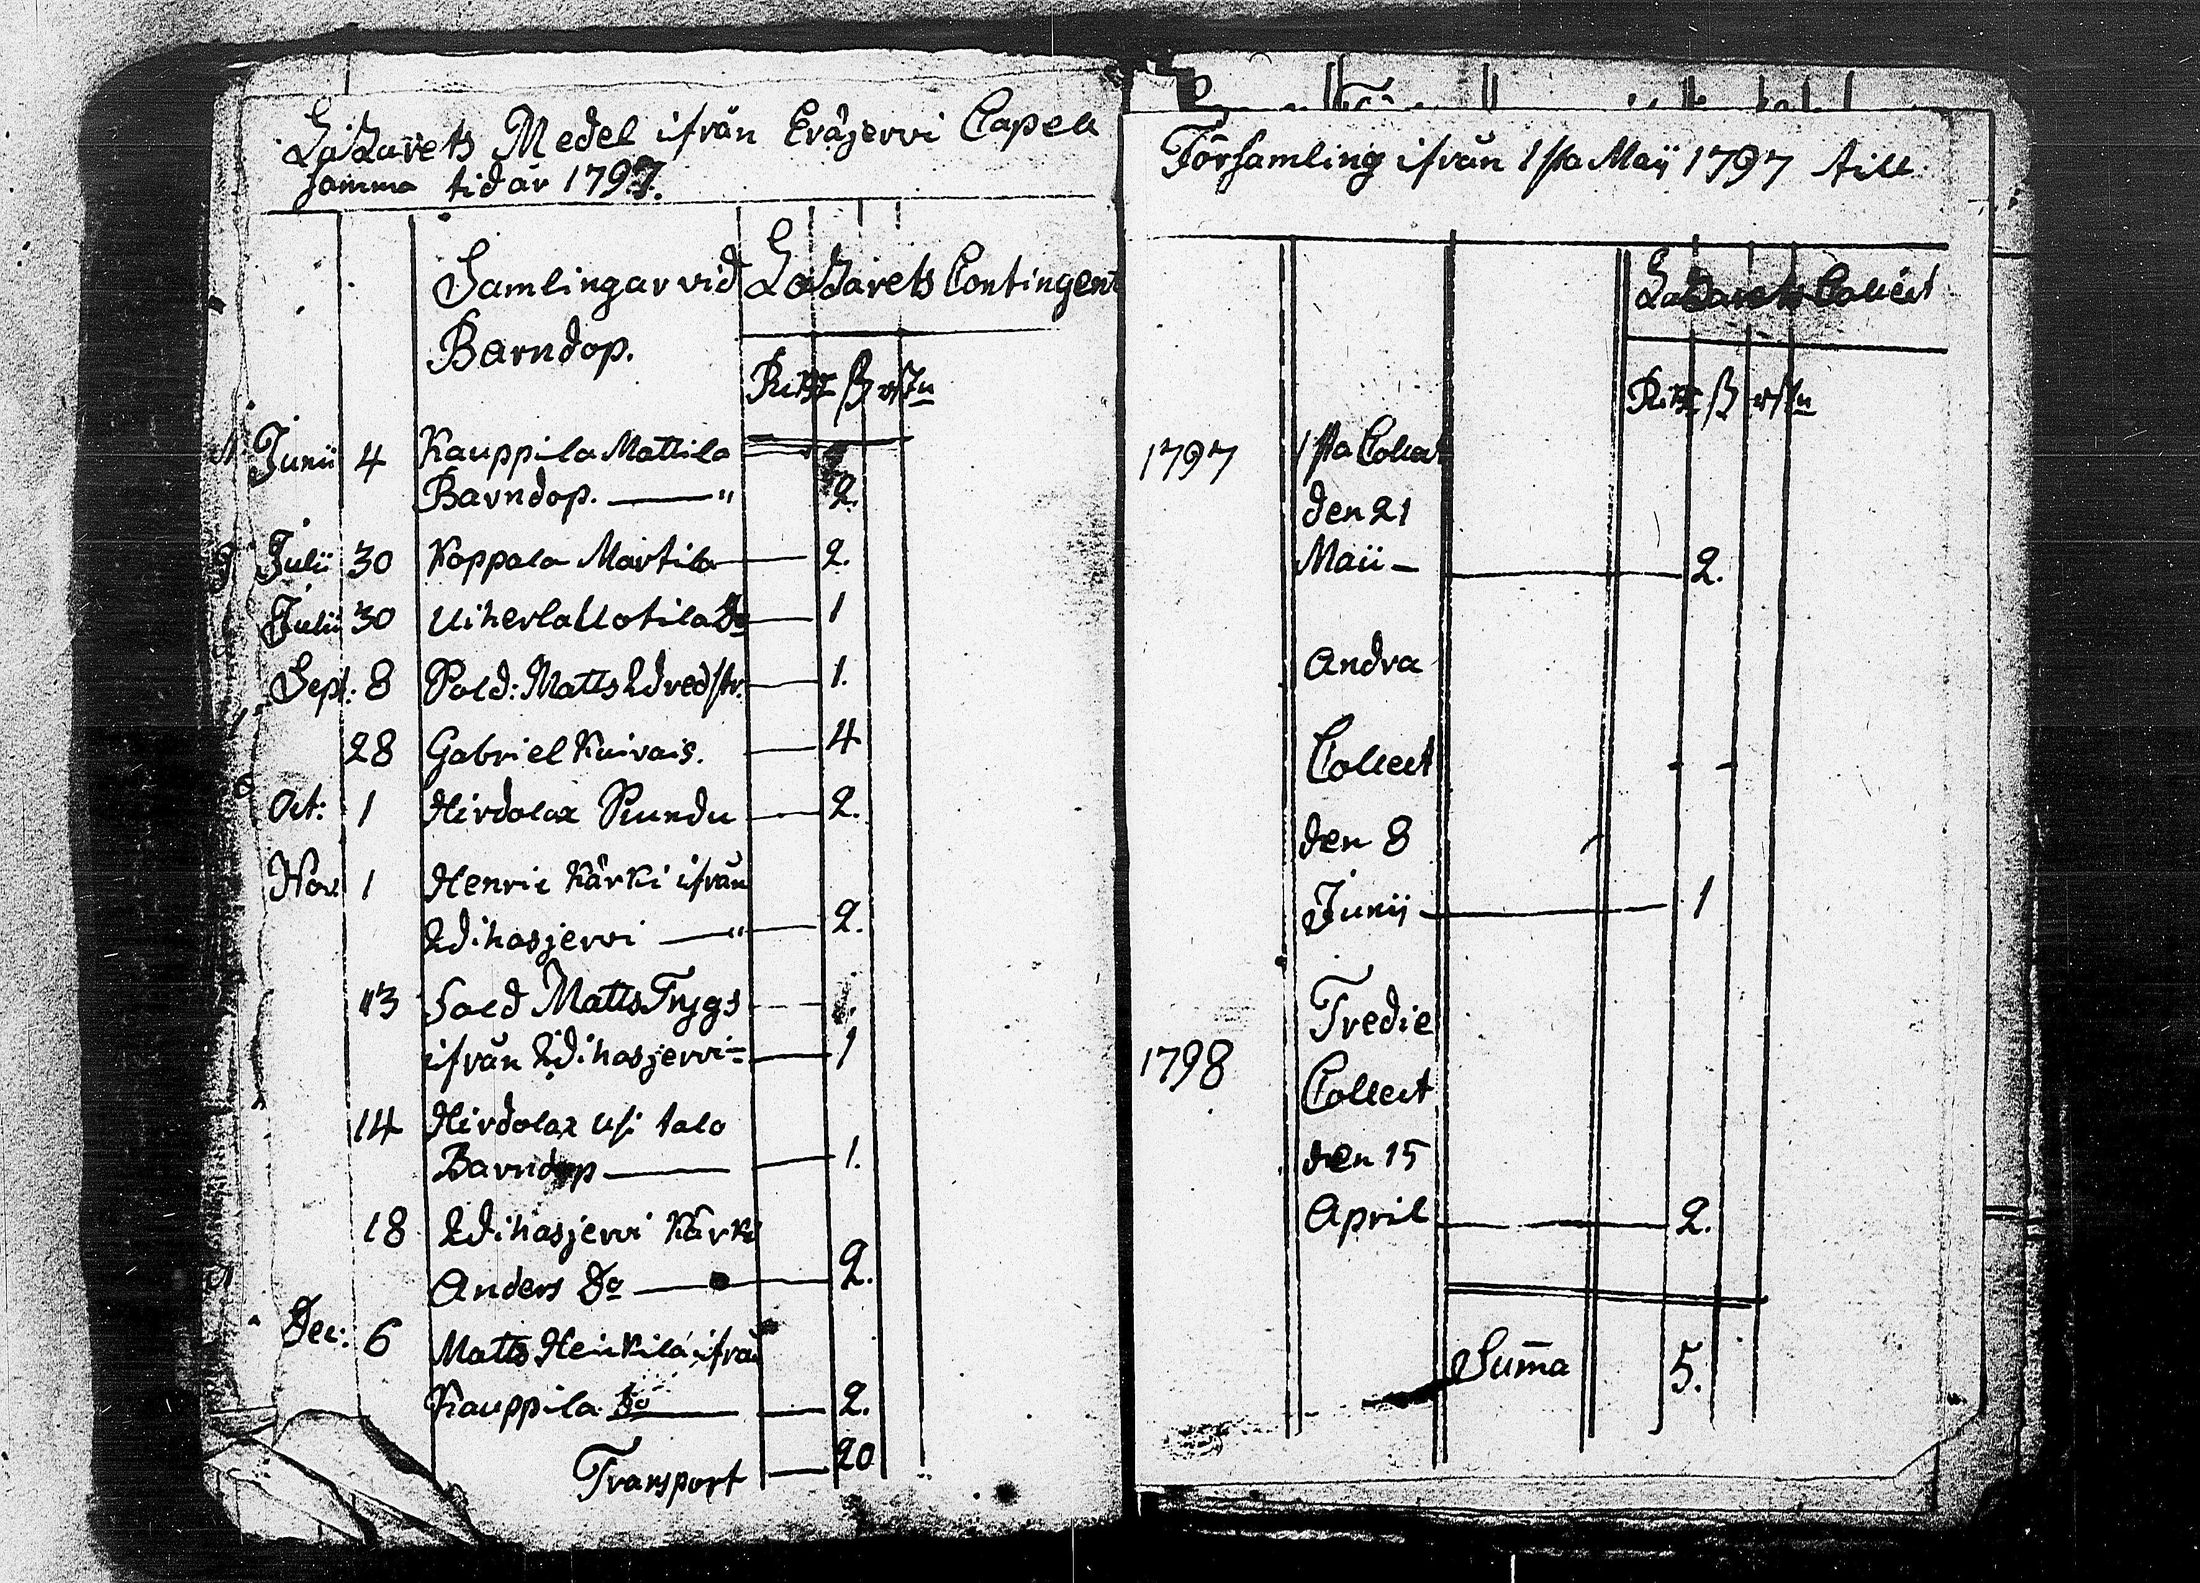 Lazarets Medel ifrån Eräjervi Capell
samma tid år 1797.
Samlingar vid Lazarets Contingent
Barndop.
Rd ß rst
Junii 4 Kauppila Mattila
Barndop. — " 2.
Julii 30 Koppala Martila — 2.
Julii 30 Uiherla Uotila Do — 1
Sept: 8 Sold: Matts — 1.
28 Gabriel Kuivais. — 4
Oct: 1 Hirdolax Pundu — 2.
Nov 1 Henric Kärki ifrån
Wihasjervi — " — 2.
13 Sold Matts Trygs
ifrån Wihasjervi — 1
14 Hirdolax Usi talo
Barndop — 1.
18 Wihasjervi Kärki
Anders Do — 2.
Dec: 6 Matts Heikilä ifrån
Kauppila Do — 2.
Transport — 20
Församling ifrån 1sta Maij 1797 till
Lazarets Collect
Rd ß rst
1797 1sta Collect
den 21
Maii — 2.
Andra
Collect - -
den 8
Junij — 1
Tredie
1798
Collect
den 15
April — 2.
Suma 5.